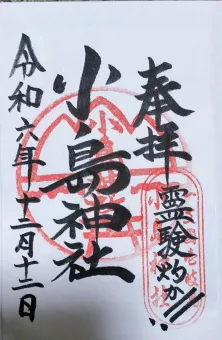 奉拝
霊験灼か!!
小島神社
令和六年十二月十二日